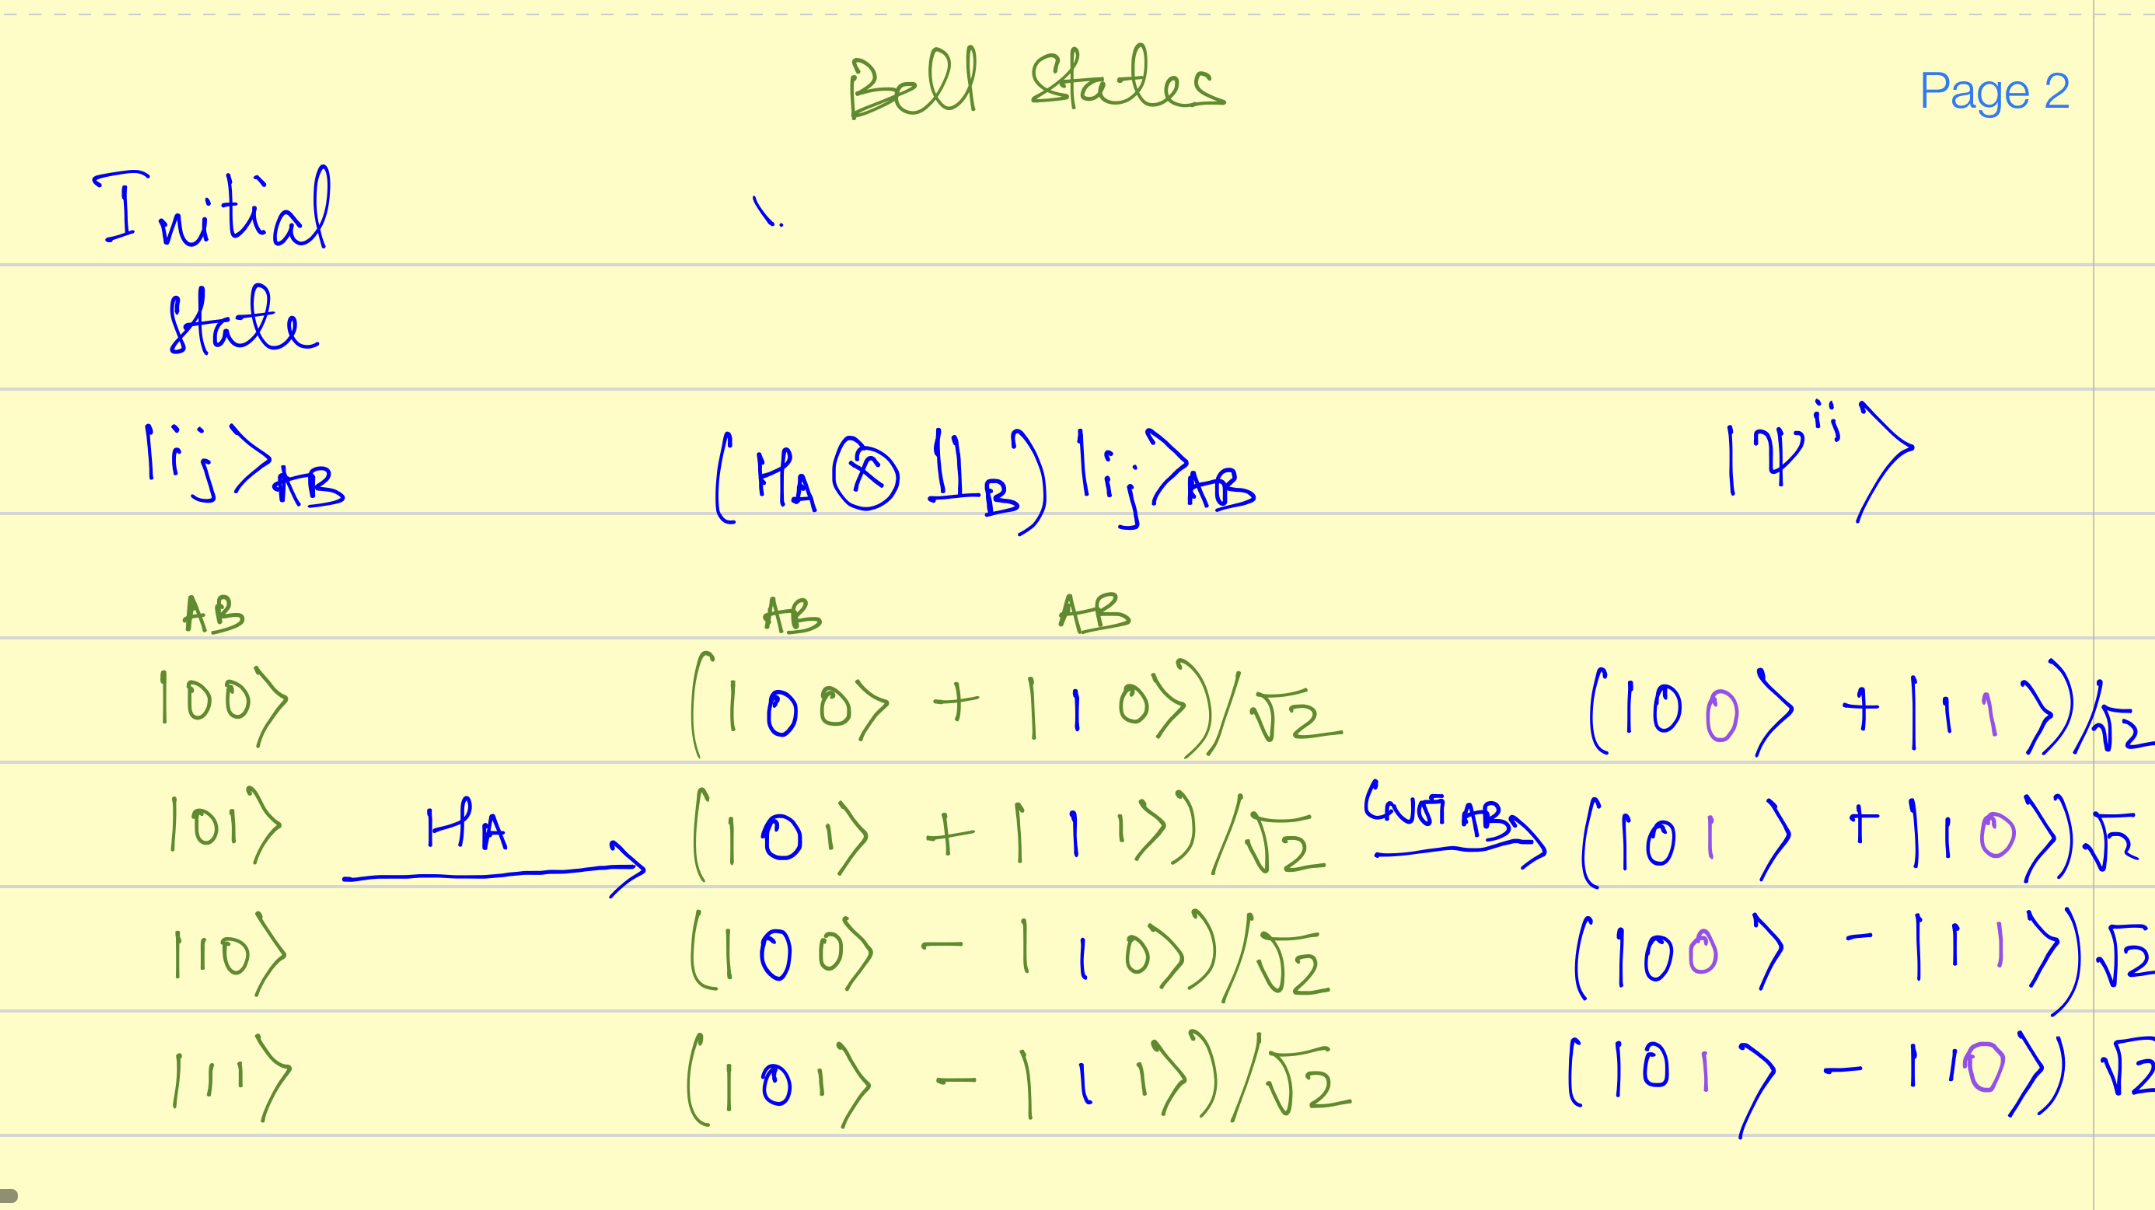 Bell States
Page 2
Initial
state
|ij>AB (HA ⊗ 𝟙B) |ij>AB |Ψ^ij⟩
AB AB AB
|00⟩ (|00⟩ + |10⟩)/√2 (|00⟩ + |11⟩)/√2
|01⟩ HA (|01⟩ + |11⟩)/√2 CNOT AB (|01⟩ + |10⟩)√2
|10⟩ (|00⟩ - |10⟩)/√2 (|00⟩ - |11⟩)√2
|11⟩ (|01⟩ - |11⟩)/√2 (|01⟩ - |10⟩)√2